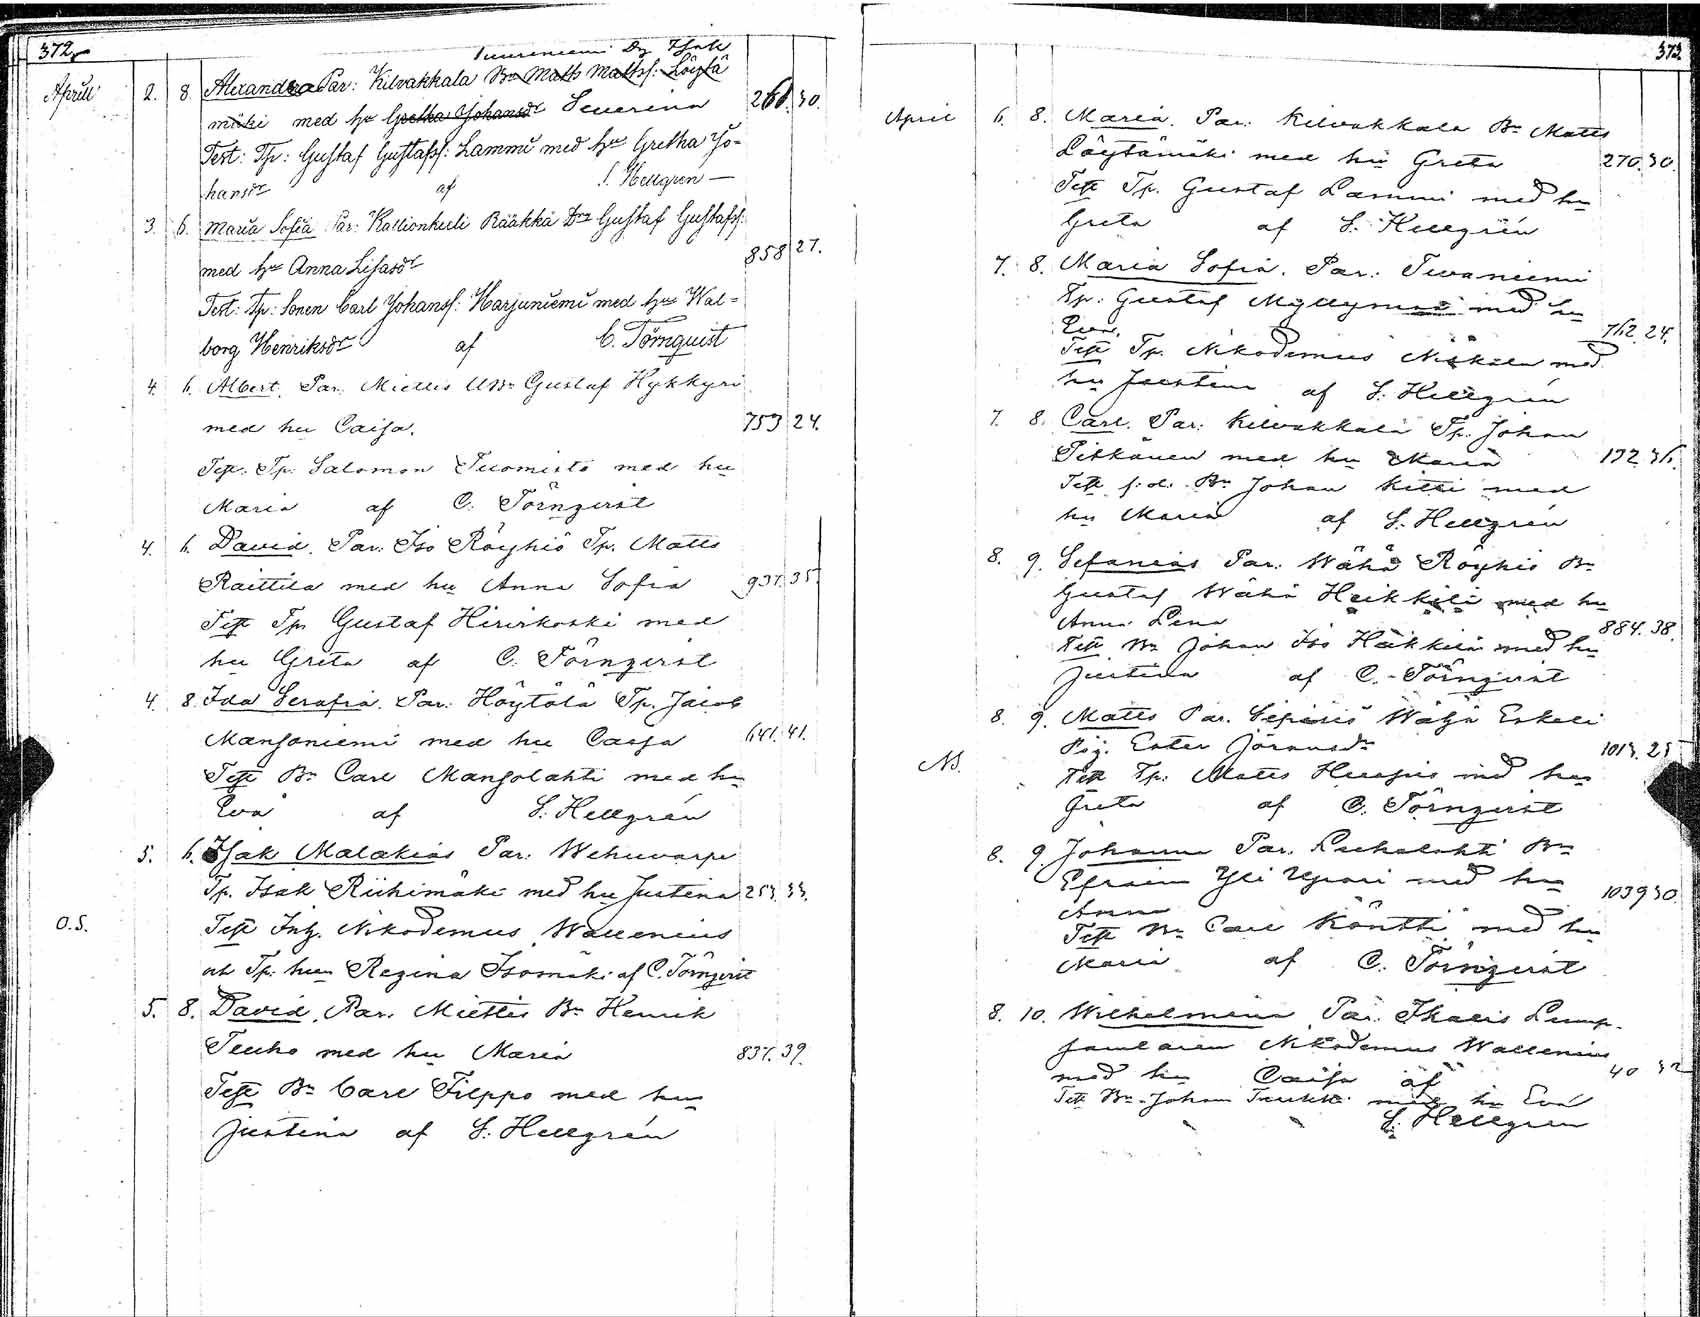 372.
Tuureniemi Dr Isak
April 2. 8. Alexandra Par: Kilvakkala Bn Matts Mattss: Löytä
mäki med hu Gretha Johansdr Severina 266. 30.
Test: Tp: Gustaf Gustafss: Lammi med hu Gretha Jo=
hansdr af S. Hellgren
3. 6. Maria Sofia Par: Kallionkieli Rääkkä Drn Gustaf Gustafss:
med hu Anna Lisasdr 858 27.
Test: Tp: Sonen Carl Johanss: Harjuniemi med hu Wal=
borg Henriksdr af C. Törnquist
4. 6. Albert. Par. Miettis Bn Gustaf Hykkyri
med hu Caisa. 753 24.
Test. Tp. Salomon Tuomisto med hu
Maria af C. Törnqvist
4. 6. David. Par: Iso Röyhiö Tp. Matts
Raittila med hu Anna Sofia 937. 35.
Test Tp. Gustaf Hirvikoski med
hu Greta af C. Törnqvist
4. 8. Ida Serafia. Par: Höytölä Tp. Jacob
Mansoniemi med hu Caisa 641. 41.
Test Bn Carl Mansolahti med hu
Eva af S. Hellgrén
5. 6. Isak Malakias Par: Wehuvarpe
Tp. Isak Riihimäki med hu Justina 253. 33.
O.S. Test Inh. Nikodemus Wallenius
och Tp: hu Regina Isomäki af C. Törnqvist
5. 8. David. Par. Miettis Bn Henrik
Teuho med hu Maria 837. 39.
Test Bn Carl Filppo med hu
Justina af S. Hellgrén
373
April 6. 8. Maria. Par: Kilvakkala Bn Matts
Löytämäki med hu Greta 270. 30.
Test Tp. Gustaf Lammi med hu
Greta af S. Hellgrén
7. 8. Maria Sofia. Par: Tevaniemi
Tp: Gustaf Myllymaa med hu
Eva. 762. 24.
Test Tp. Nikodemus Niskala med
hu Justina af S. Hellgrén
7. 8. Carl. Par: Kilvakkala Tp. Johan
Pitkänen med hu Maria 172. 36.
Test f.d. Bn Johan Kitti med
hu Maria af S. Hellgrén
8. 9. Sefanias Par: Wähä Röyhiö Bn
Gustaf Wähä Heikkilä med hu
Anna Lena 884. 38.
Test Bn Johan Iso Heikkilä med hu
Justina af C. Törnqvist
8. 9. Matts Par. Sipsiö Wähä Eskeli
Pig. Ester Jöransdr 1013. 25
NB. Test Tp: Matts med hu
Greta af C. Törnqvist
8. 9. Johanna Par. Luhalahti Bn
Efraim Yli Uppari med hu 1039 30.
Anna
Test Bn Carl Köntti med hu
Maria af C. Törnqvist
8. 10. Wilhelmina Par. Ikalis Lump-
samlaren Nikodemus Wallenius 40 32
med hu Caisa af
Test Bn Johan med hu Eva
S. Hellgren